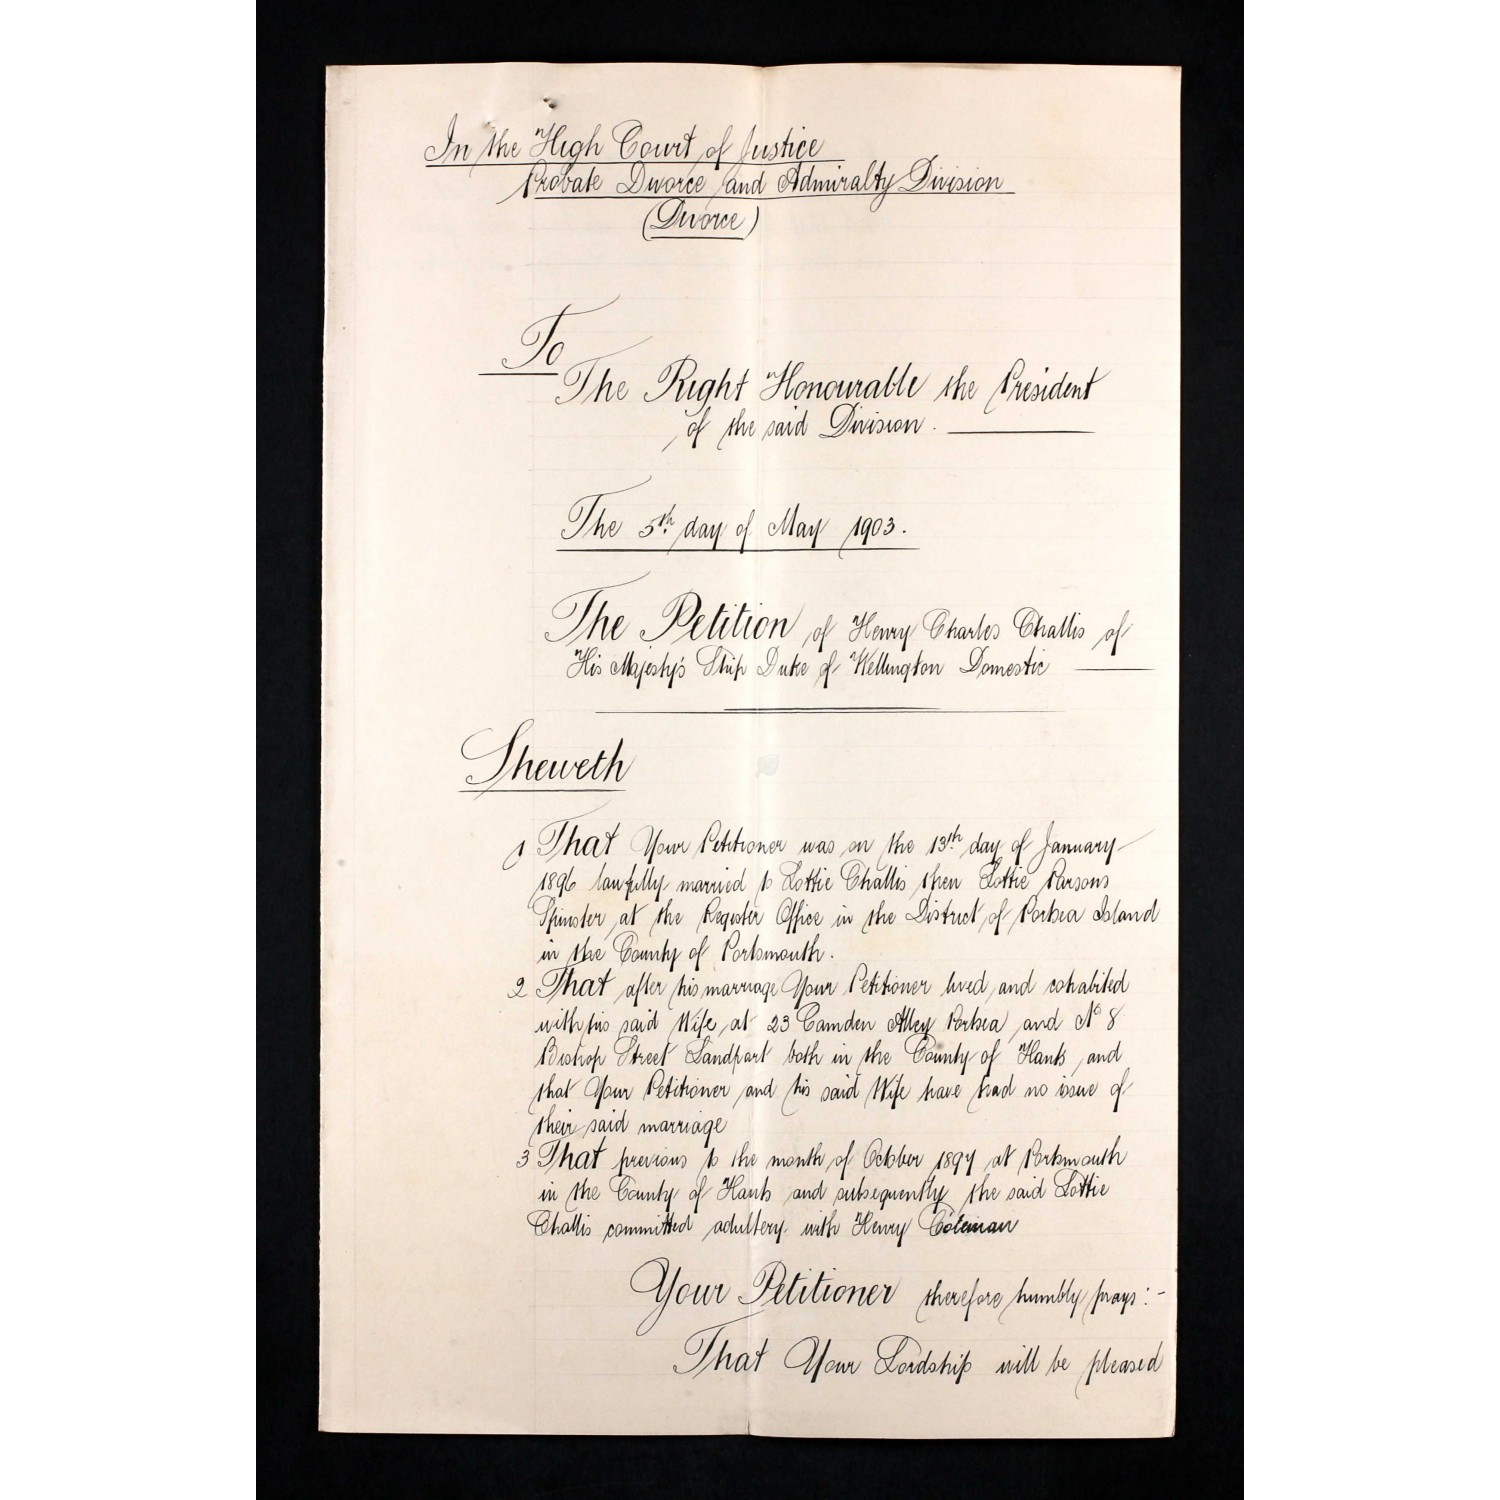 In the High Court of Justice
Probate Divorce and Admiralty Division
(Divorce)
To
The Right Honourable the President
of the said Division.
The 5th day of May 1903.
The Petition of Henry Charles Challis of
His Majesty's Ship Duke of Wellington Domestic
Sheweth
1 That Your Petitioner was on the 13th day of January
1896 lawfully married to Lottie Challis then Lottie Parsons
Spinster at the Register Office in the District of Portsea Island
in the County of Portsmouth.
2 That after his marriage Your Petitioner lived and cohabited
with his said Wife at 23 Camden Alley Portsea and No 8
Bishop Street Landport both in the County of Hants and
that Your Petitioner and his said Wife have had no issue of
their said marriage
3 That previous to the month of October 1897 at Portsmouth
in the County of Hants and subsequently the said Lottie
Challis committed adultery with Henry Coleman
Your Petitioner therefore humbly prays:-
That Your Lordship will be pleased